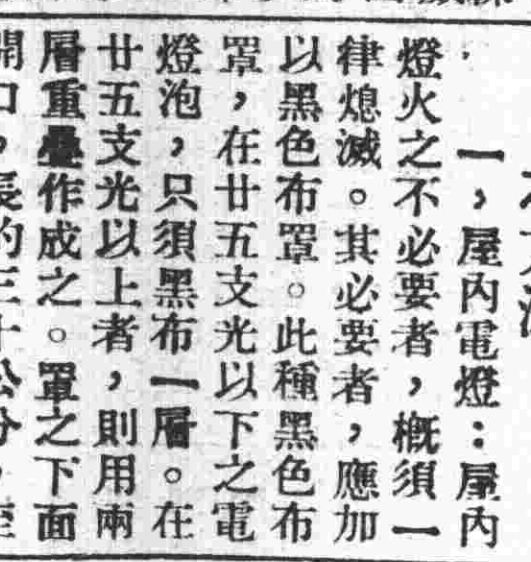 一，屋內電燈：屋內
燈火之不必要者，概須一
律熄滅。其必要者，應加
以黑色布罩。此種黑色布
罩，在廿五支光以下之電
燈泡，只須黑布一層。在
廿五支光以上者，則用兩
層重疊作成之。罩之下面
開口，長約三十公分，至